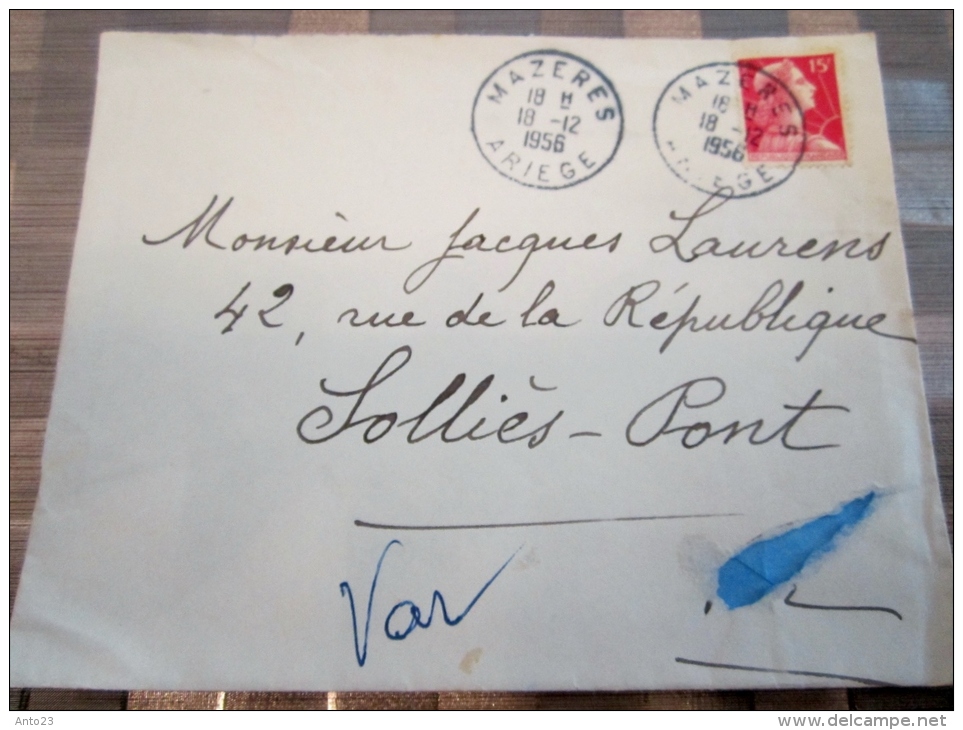 MAZERES
18 H
18 -12
1956
ARIEGE
MAZERES
18 H
18 -12
1956
ARIEGE
15F
Monsieur Jacques Laurens
42, rue de la République
Solliès-Pont
Var
Anto23
www.delcampe.net